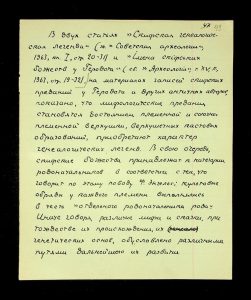 В двух статьях «Скифская генеалоги-
ческая легенда» (ж. «Советская археология»,
и «Имена скифских
божеств у Геродота»
на материалах записи скифских
преданий у Геродота и других античных авторов
показано, что мифологические предания
становятся достоянием племенной и союзно-
племенной верхушки, верхушечных кастовых
образований, приобретают характер
генеалогических легенд. В свою очередь,
скифские божества принадлежат к категории
родоначальников в соответствии с тем, что
говорил по этому поводу Ф. Энгельс; культовые
обряды у каждого племени выполнялись
в честь «отдельного родоначальника рода».
Иначе говоря, различие мифа и сказки, при
тождестве их происхождения, их
генетических основ, обусловлено различными
путями дальнейшего их развития